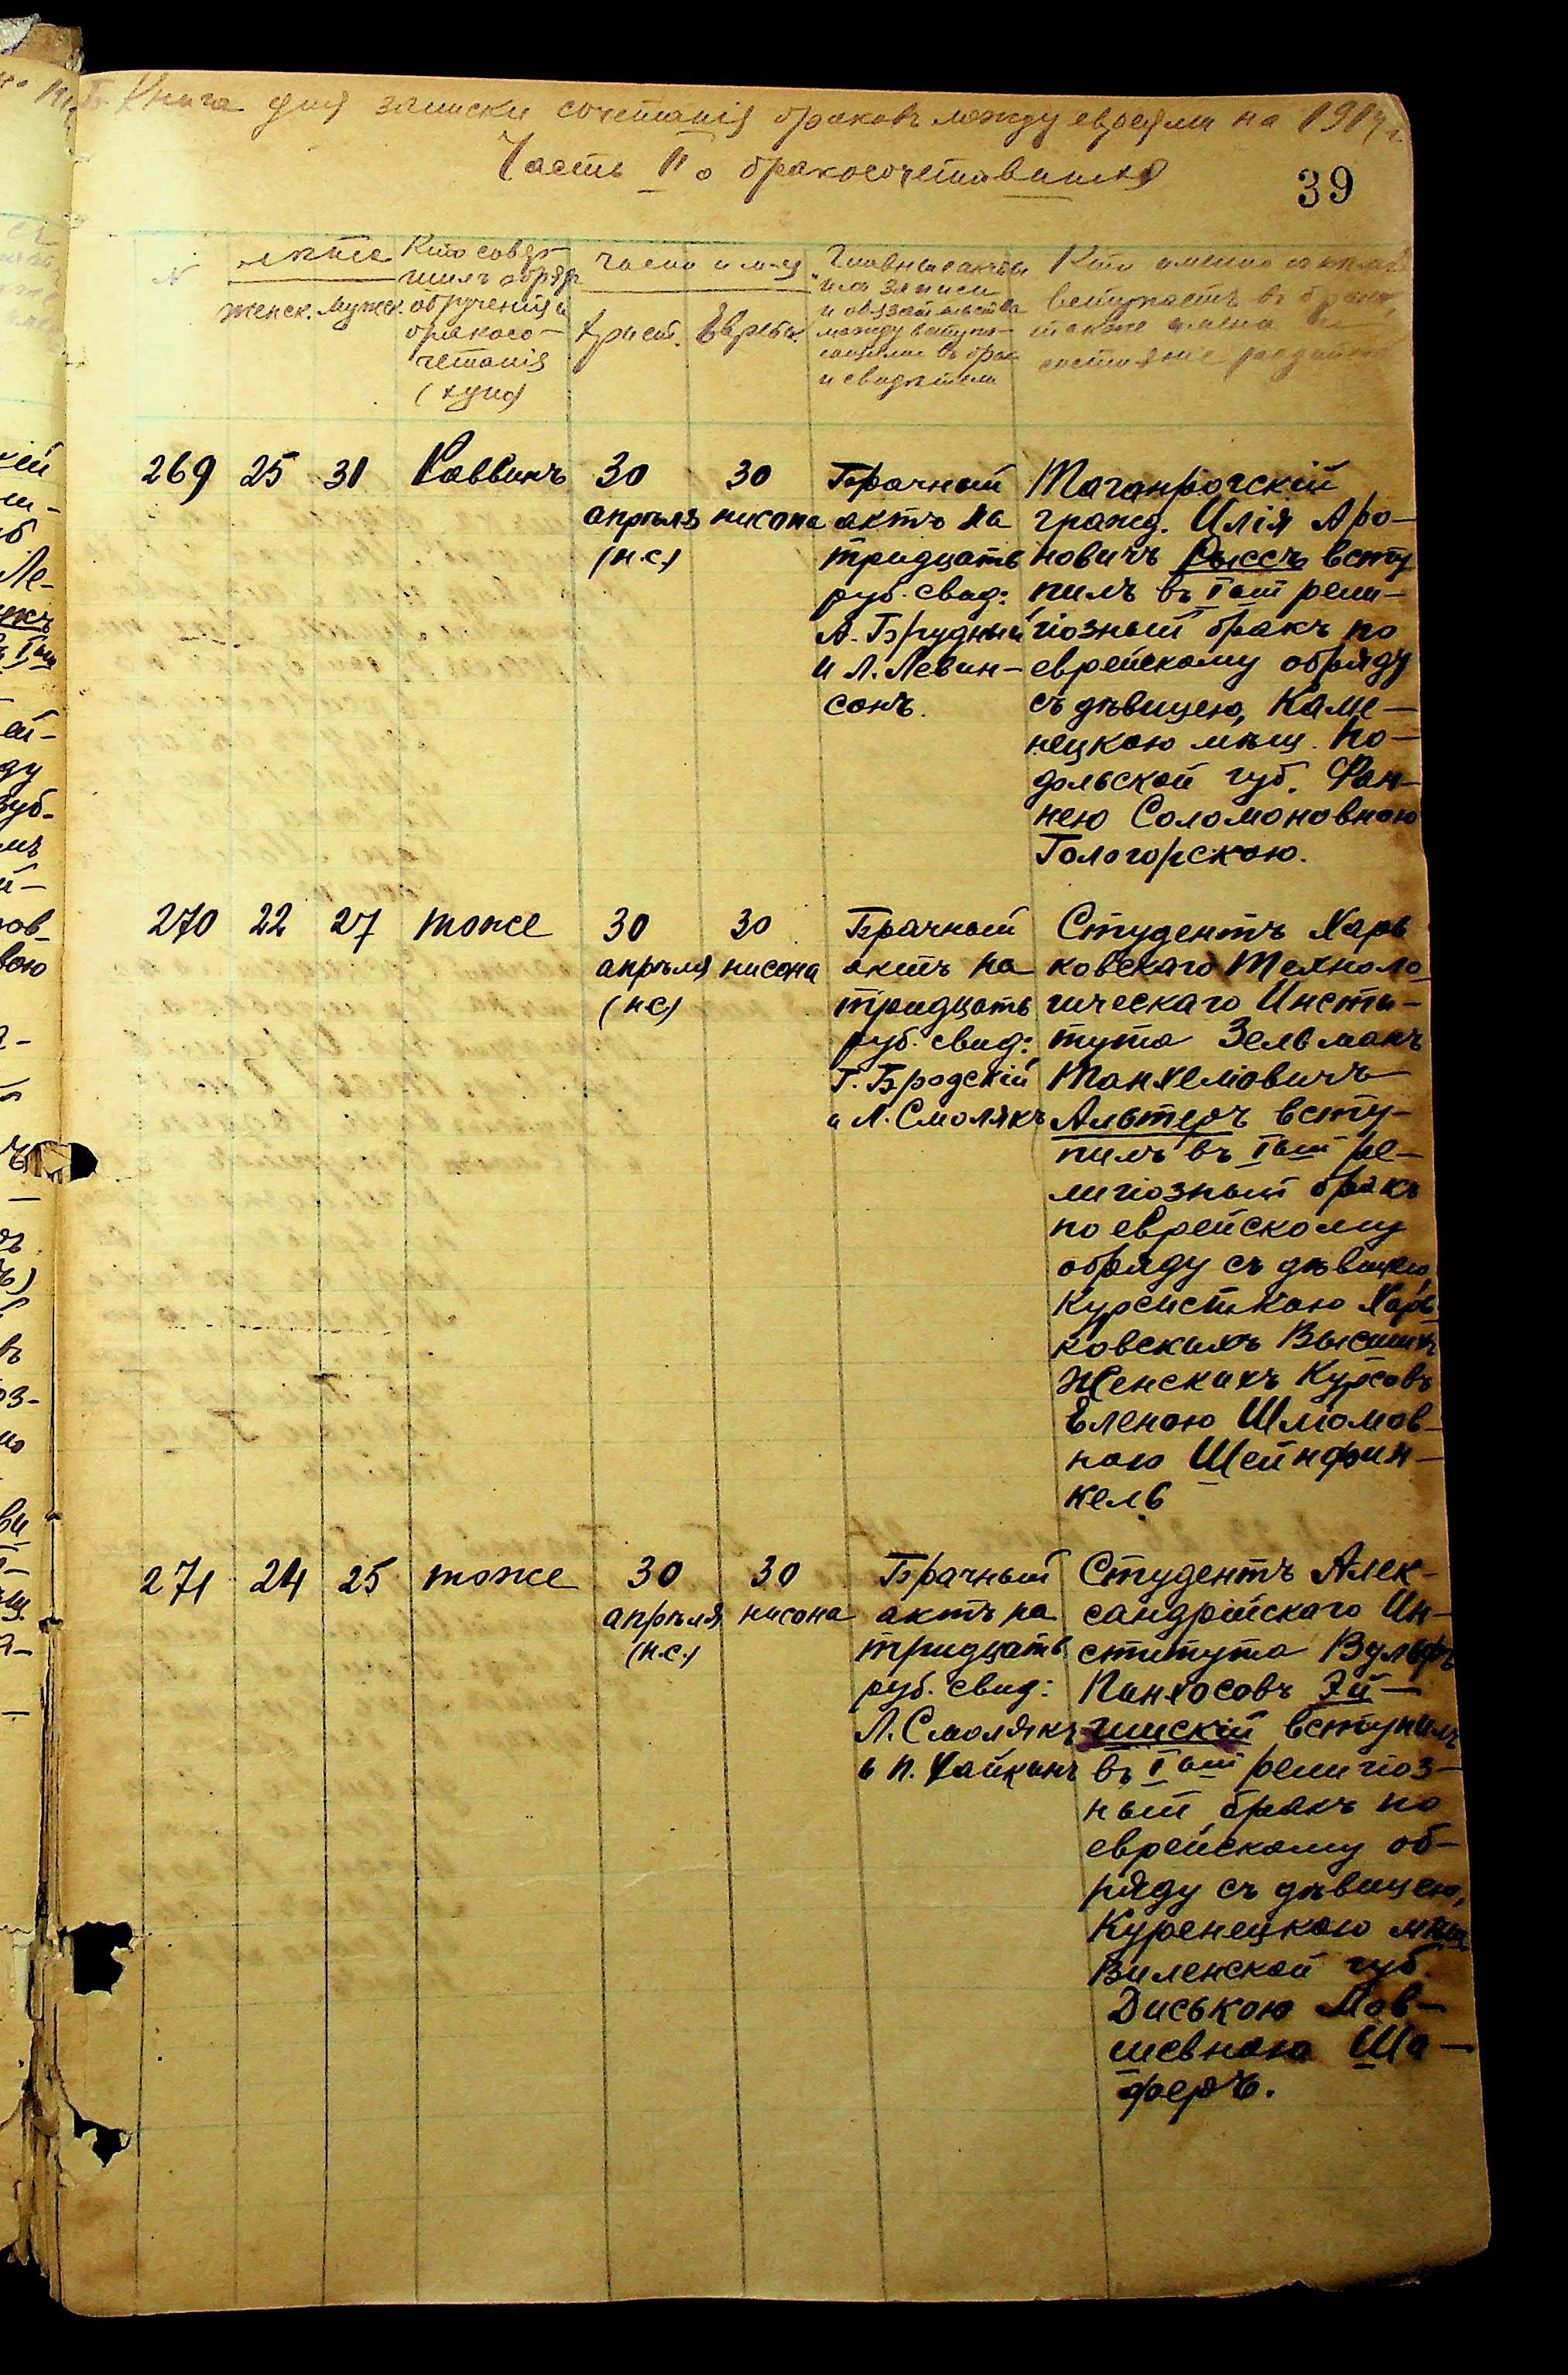 Книга для записки сочетанія браковъ между евреями на 1919 г.
Часть II о бракосочетавшихся
39
№
лѣта
женск. мужск.
Кто совер-
шилъ обряд
обрученія и
бракосо-
четанія
(хупа)
число и м-ц
Христ. Еврейск.
Главные акты
или записи
и обязательства
между вступа-
ющими въ брак
и свидѣтели
Кто именно съ кѣмъ
вступаетъ въ бракъ,
также имена и
состояніе родителей
269 25 31 Раввинъ
30
апрѣля
(н.с.)
30
нисона
Брачный
актъ на
тридцать
руб. свид:
А. Брудный
и Л. Левин-
сонъ.
Таганрогскій
гражд. Илія Аро-
новичъ Рыссъ всту
пилъ въ Iый рели-
гіозный бракъ по
еврейскому обряду
съ дѣвицею, Каме-
нецкою мѣщ. По-
дольской губ. Фан-
нею Соломоновною
Гологорскою.
270 22 27 тоже
30
апрѣля
(н.с.)
30
нисона
Брачный
актъ на
тридцать
руб. свид:
Г. Бродскій
и Л. Смолякъ
Студентъ Харь
ковскаго Техноло
гическаго Инсти-
тута Зельманъ
Танхеліовичъ
Альтеръ всту-
пилъ въ Iый ре-
лигіозный бракъ
по еврейскому
обряду съ дѣвицею,
Курсисткою Харь
ковскихъ Высшихъ
Женскихъ Курсовъ
Еленою Шліомов-
ною Шейнфин-
кель
271 24 25 тоже
30
апрѣля
(н.с.)
30
нисона
Брачный
актъ на
тридцать
руб. свид:
Л. Смолякъ
и П. Хайкинъ
Студентъ Алек-
сандрійскаго Ин-
ститута Вульфъ
Пинхосовъ Эй-
шискій вступилъ
въ Iый религіоз-
ный бракъ по
еврейскому об-
ряду съ дѣвицею,
Куренецкою мѣщ.
Виленской губ.
Диською Мов-
шевною Ша-
феръ.